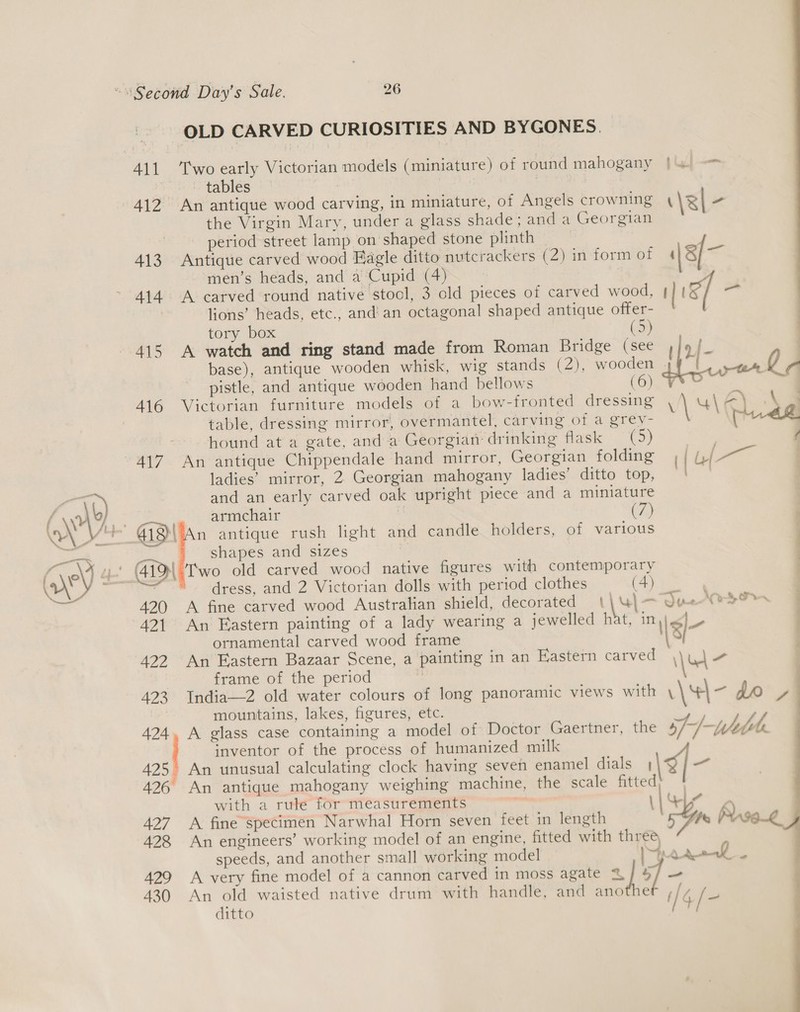 Second Day's Sale. 26
OLD CARVED CURIOSITIES AND BYGONES.
411 Two early Victorian models (miniature) of round mahogany
tables
412 An antique wood carving, in miniature, of Angels crowning
the Virgin Mary, under a glass shade; and a Georgian
period street lamp on shaped stone plinth
413 Antique carved wood Eagle ditto nutcrackers (2) in form of
men's heads, and a Cupid (4)
414 A carved round native stool, 3 old pieces of carved wood,
lions' heads, etc., and an octagonal shaped antique offer-
tory box (5)
415 A watch and ring stand made from Roman Bridge (see
base), antique wooden whisk, wig stands (2), wooden
pistle, and antique wooden hand bellows (6)
416 Victorian furniture models of a bow-fronted dressing
table, dressing mirror, overmantel, carving of a grey-
hound at a gate, and a Georgian drinking flask (5)
417 An antique Chippendale hand mirror, Georgian folding
ladies' mirror, 2 Georgian mahogany ladies' ditto top,
and an early carved oak upright piece and a miniature
armchair (7)
418 An antique rush light and candle holders, of various
shapes and sizes
419 Two old carved wood native figures with contemporary
dress, and 2 Victorian dolls with period clothes (4)
420 A fine carved wood Australian shield, decorated
421 An Eastern painting of a lady wearing a jewelled hat, in
ornamental carved wood frame
422 An Eastern Bazaar Scene, a painting in an Eastern carved
frame of the period
423 India—2 old water colours of long panoramic views with
mountains, lakes, figures, etc. do
424 A glass case containing a model of Doctor Gaertner, the
inventor of the process of humanized milk
425 An unusual calculating clock having seven enamel dials
426 An antique mahogany weighing machine, the scale fitted
with a rule for measurements
427 A fine specimen Narwhal Horn seven feet in length
428 An engineers' working model of an engine, fitted with three
speeds, and another small working model
429 A very fine model of a cannon carved in moss agate
430 An old waisted native drum with handle, and another
ditto